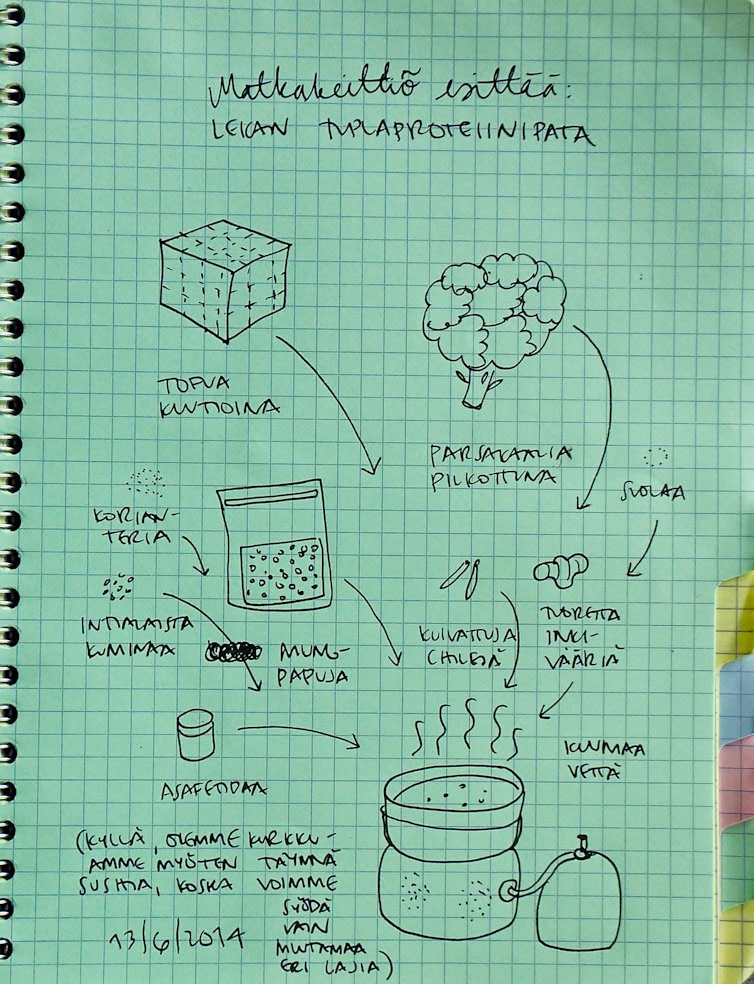 Matkakeittiö esittää:
LEKAN TUPLAPROTEIINIPATA
TOFUA
KUUTIOINA
PARSAKAALIA
PILKOTTUNA
SUOLAA
KORIAN-
TERIA
INTIALAISTA
KUMINAA
MUNG-
PAPUJA
KUIVATTUJA
CHILEJÄ
TUORETTA
INKI-
VÄÄRIÄ
KUUMAA
VETTÄ
ASAFETIDAA
(KYLLÄ, OLEMME KURKKU-
AMME MYÖTEN TÄYNNÄ
SUSHIA, KOSKA VOIMME
SYÖDÄ
VAIN
MUUTAMAA
ERI LAJIA)
13/6/2014